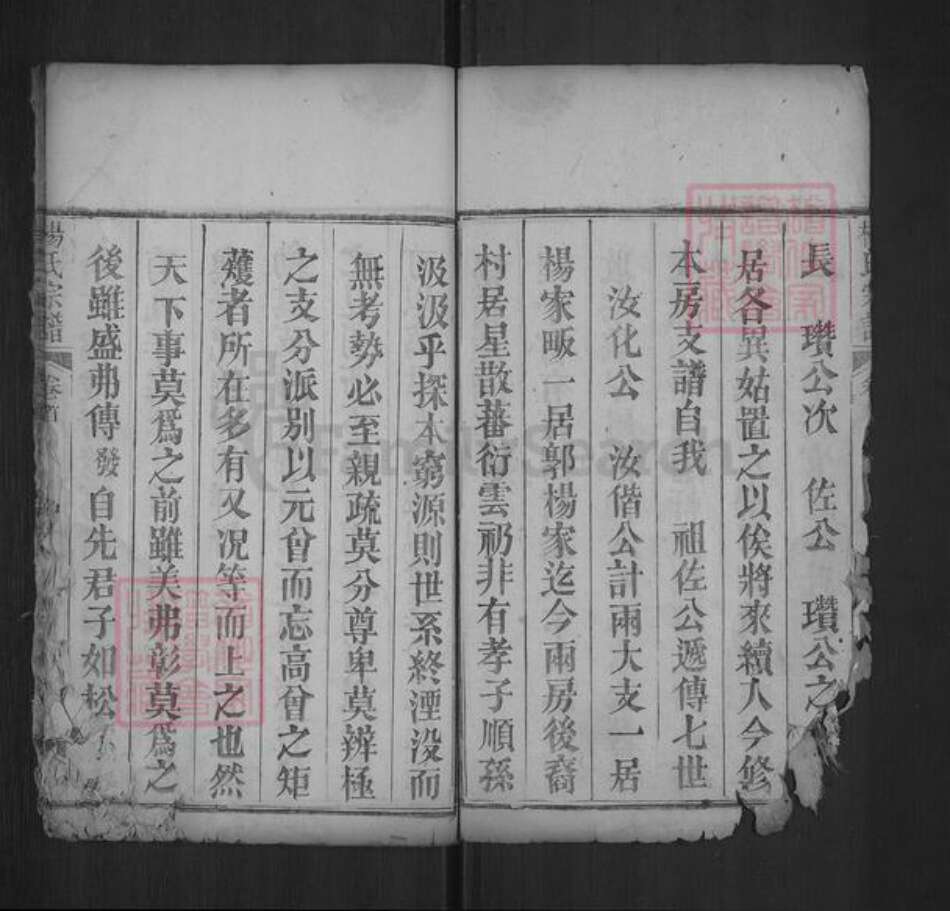 長　瓚公次　佐公　瓚公之
居各異姑置之以俟將來續入今修
本房支譜自我　祖佐公遞傳七世
汝化公　汝偕公計兩大支一居
楊家畈一居郭楊家迄今兩房後裔
村居星散蕃衍雲礽非有孝子順孫
汲汲乎探本窮源則世系終湮没而
無考勢必至親疏莫分尊卑莫辨極
之支分派别以元曾而忘高曾之矩
蒦者所在多有又况等而上之也然
天下事莫爲之前雖美弗彰莫爲之
後雖盛弗傳發自先君子如松
楊氏宗譜　卷首